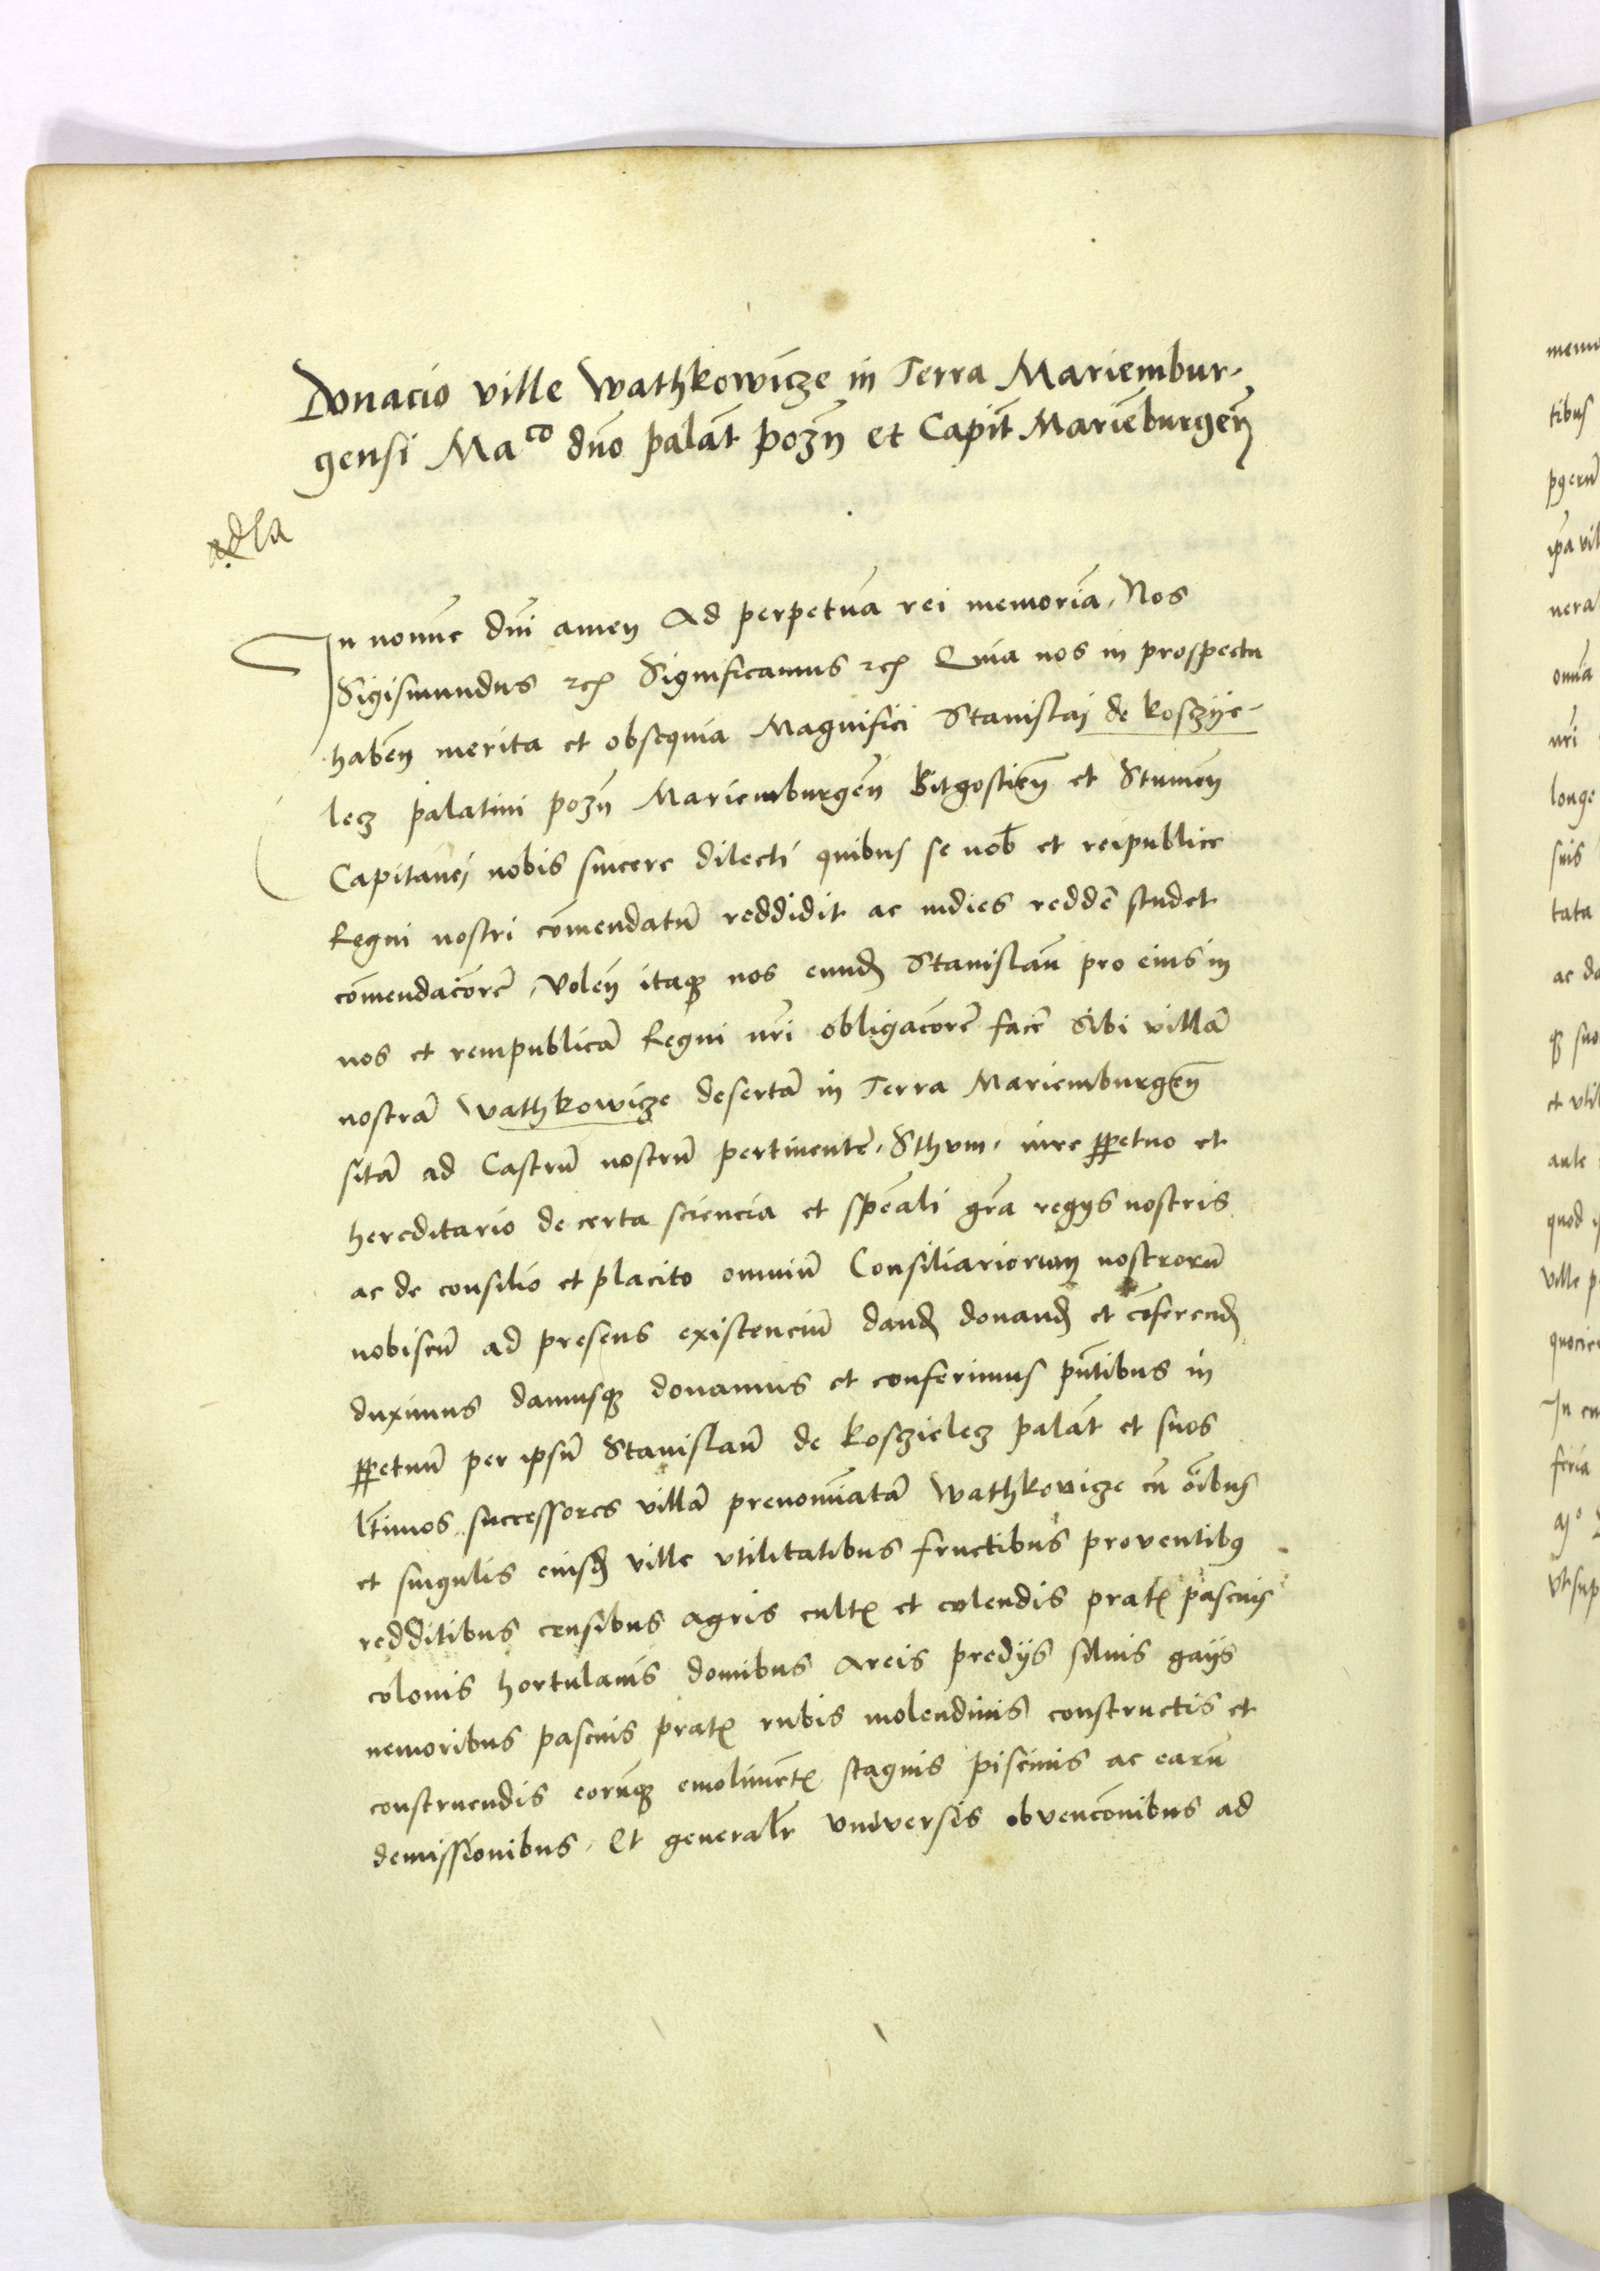 Donacio ville Wathkowicze in Terra Mariembur-
gensi Maco dno palat pozn et Capit Marieburgen
In nomine dni amen Ad perpetua rei memoria, Nos
Sigismundus Significamus Quia nos in prospectu
haben merita et obsequia Magnifici Stanislai de kosczye-
lecz palatini pozn Mariemburgen Bitgostien et Stumen
Capitanei nobis sincere dilecti quibus se nob et reipublice
Regni nostri comendatu reddidit ac indies redde studet
comendaciore, Volen itaqz nos eund Stanislau pro eius in
nos et rempublica Regni nri obligaciore face Sibi villa
nostra Wathkowicze deserta in Terra Mariemburgen
sita ad Castru nostru pertinente, Sthum, iure ppetuo et
hereditario de certa sciencia et speali gra regys nostris
ac de consilio et placito omniu Consiliariorum nostroru
nobiscu ad presens existenciu dand donand et coferend
duximus damusqz donamus et conferimus pntibus in
ppetuu per ipsu Stanislau de kosczielecz palat et suos
ltimos successores villa prenominata Wathkowicze cu oibus
et singulis eiusd ville vtilitatibus fructibus proventibus
redditibus censibus agris cult et colendis prat pascuis
colonis hortulanis domibus Areis predys siluis gays
nemoribus pascuis prat rubis molendinis constructis et
construendis eorunqz emoliment stagnis piscinis ac earu
demissionibus, Et generalr vniversis obvencionibus ad
tibus
ville
longe
suis
tata
quod
feria